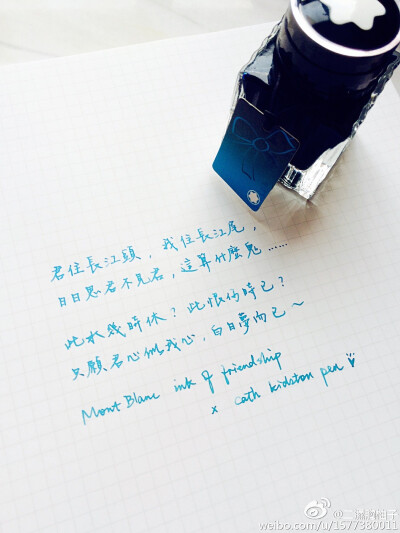 君住長江頭，我住長江尾，
日日思君不見君，這算什麼鬼……
此水幾時休？此恨何時已？
只願君心似我心，白日夢而已～
Mont Blanc ink of friendship
x cath kidston pen
weibo.com/u/1577380011